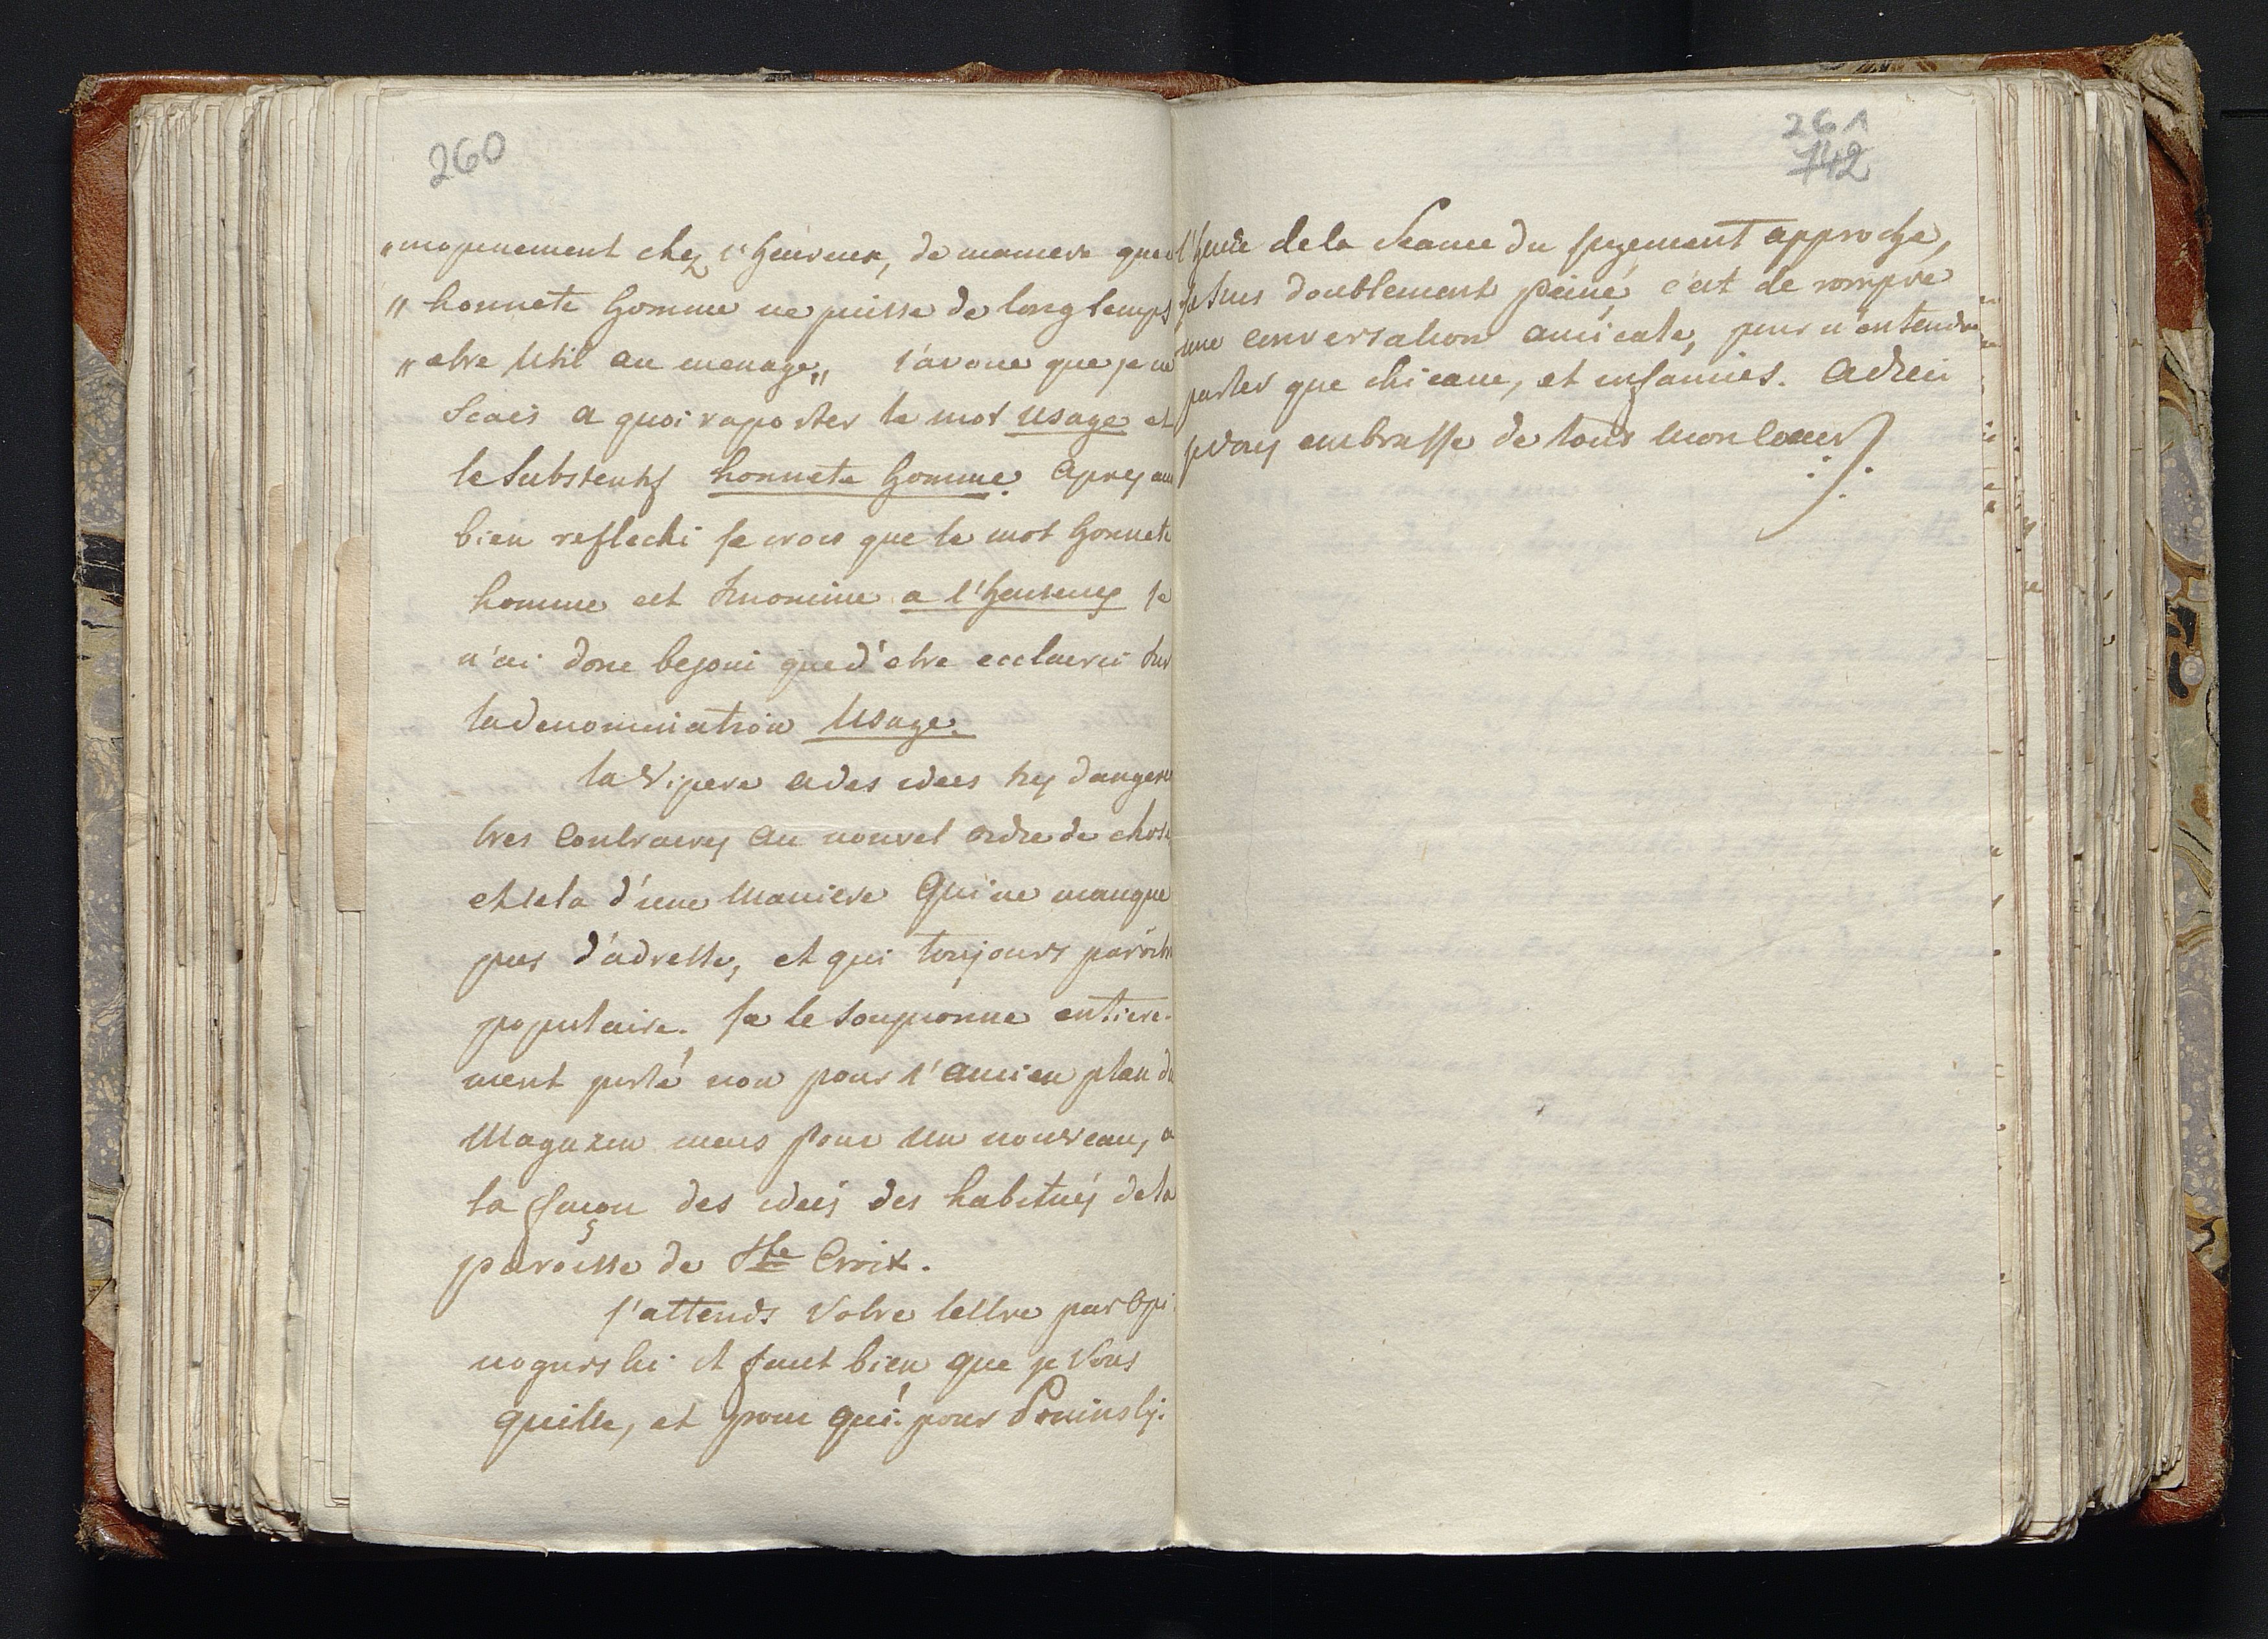 260
„moyenement chez l'heureux, de maniere que l'
„ honnete homme ne puisse de long temps
„ etre Util au menage „ j'avoue que je ne
Scais a quoi raporter le mot usage et
le Substentif honnete homme. Apres avoir
bien reflechi je crois que le mot honnete
homme est Sinonime a l'heureux je
n'ai donc besoin que d'etre ecclairci sur
la denominiation Usage.
la Vipere a des idees tres dangere
tres Contraires au nouvel ordre de chose
et cela d'une Maniere Qui ne manque
pas d'adresse, et qui toujours paroitre
populaire. Je le soupconne entiere-
ment porté non pour l'ancien plan du
Magazin mais pour Un nouveau, a
la façon des idees des habitués de la
paroisse de Ste Croix.
J'attends Votre lettre par Opi
nogurski il faut bien que je Vous
quitte, et pour qui? pour Poninsky.
261
742
l'heure de la Seance du jugement approche,
je suis doublement peiné, c'est de rompre
une conversation amicale, pour n'entendre
parler que chicane, et infamies. Adieu
je Vous embrasse de tout Mon Coeur